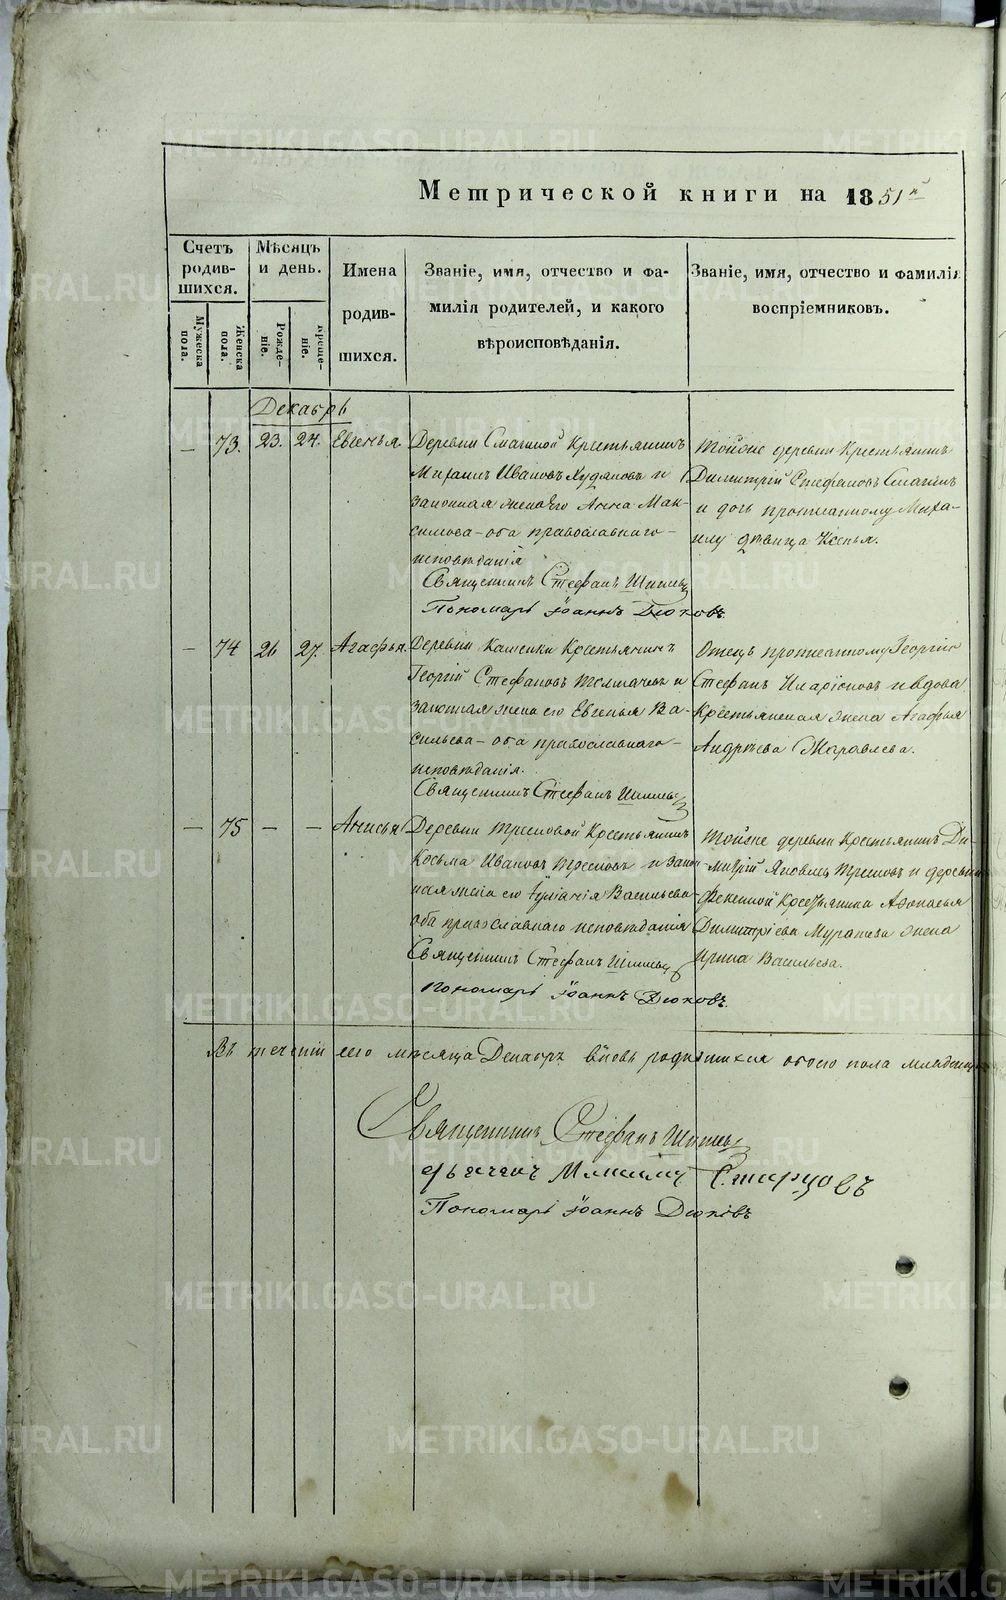 Метрической книги на 1851й
Счетъ родив-шихся.
Мужеска пола.
Женска пола.
Мѣсяцъ и день.
Рожде-ніе.
Креще-ніе.
Имена
родив-
шихся.
Званіе, имя, отчество и фа-
милія родителей, и какого
вѣроисповѣданія.
Званіе, имя, отчество и фамилія
воспріемниковъ.
Декабрь
— 73. 23. 24. Евгенья.
Деревни Смагиной Крестьянинъ
Михаилъ Ивановъ Худяковъ и
законная жена его Анна Мак-
симова — оба православнаго —
исповѣданія
Священникъ Стефанъ
Пономарь Іоаннъ Дюковъ.
Тойже деревни Крестьянинъ
Димитрій Стефановъ Смагинъ
и дочь прописанному Миха-
илу дѣвица Ксенья.
— 74 26 27. Агафья.
Деревни Крестьянинъ
Георгій Стефановъ Толмачевъ и
законная жена его Евгенья Ва-
сильева — оба православнаго —
исповѣданія.
Священникъ Стефанъ
Отецъ прописанному Георгію
Стефанъ Иларіоновъ и вдова
Крестьянская жена Агафья
Андрѣева Журавлева.
— 75 — — Анисья
Деревни Крестьянинъ
Косьма Ивановъ и закон-
ная жена его Іуліанія Васильева
оба православнаго исповѣданія
Священникъ Стефанъ
Пономарь Іоаннъ Дюковъ.
Тойже деревни Крестьянинъ Ди-
митрій Яковлевъ и деревни
Крестьянина Афанасья
Димитріева Муратова жена
Ирина Васильева.
Въ теченіи сего мѣсяца Декабря вновь родившихся обоего пола младенцевъ
Священникъ Стефанъ
дьячекъ Старцовъ
Пономарь Іоаннъ Дюковъ
METRIKI.GASO-URAL.RU